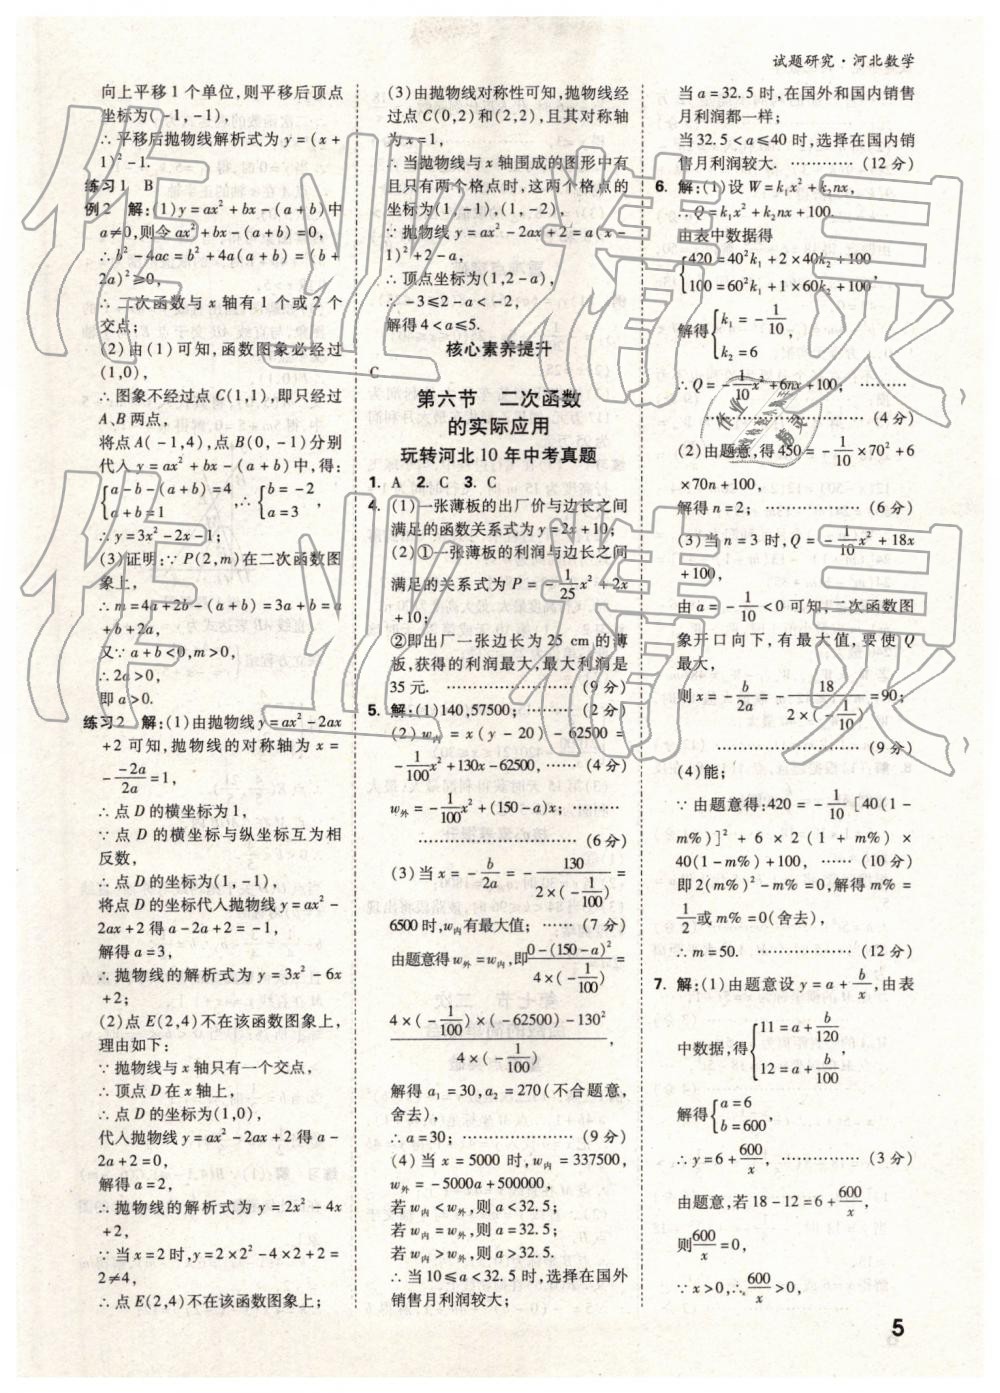 试题研究·河北数学
向上平移1个单位,则平移后顶点
坐标为(-1,-1),
∴平移后抛物线解析式为y=(x+
1)²-1.
练习1 B
例2 解:(1)y=ax²+bx-(a+b)中
a≠0,则令ax²+bx-(a+b)=0,
∴b²-4ac=b²+4a(a+b)=(b+
2a)²≥0,
∴二次函数与x轴有1个或2个
交点;
(2)由(1)可知,函数图象必经过
(1,0),
∴图象不经过点C(1,1),即只经过
A,B两点,
将点A(-1,4),点B(0,-1)分别
代入y=ax²+bx-(a+b)中,得:
{a-b-(a+b)=4 a+b=1 ,∴{b=-2 a=3 ,
∴y=3x²-2x-1;
(3)证明:∵P(2,m)在二次函数图
象上,
∴m=4a+2b-(a+b)=3a+b=a
+b+2a,
又∵a+b<0,m>0,
∴2a>0,
即a>0.
练习2 解:(1)由抛物线y=ax²-2ax
+2可知,抛物线的对称轴为x=
-\frac{-2a}{2a}=1,
∴点D的横坐标为1,
∵点D的横坐标与纵坐标互为相
反数,
∴点D的坐标为(1,-1),
将点D的坐标代入抛物线y=ax²-
2ax+2得a-2a+2=-1,
解得a=3,
∴抛物线的解析式为y=3x²-6x
+2;
(2)点E(2,4)不在该函数图象上,
理由如下:
∵抛物线与x轴只有一个交点,
∴顶点D在x轴上,
∴点D的坐标为(1,0),
代入抛物线y=ax²-2ax+2得a-
2a+2=0,
解得a=2,
∴抛物线的解析式为y=2x²-4x
+2,
∵当x=2时,y=2×2²-4×2+2=
2≠4,
∴点E(2,4)不在该函数图象上;
(3)由抛物线对称性可知,抛物线经
过点C(0,2)和(2,2),且其对称轴
为x=1,
∴当抛物线与x轴围成的图形中有
且只有两个格点时,这两个格点的
坐标为(1,-1),(1,-2),
∵抛物线y=ax²-2ax+2=a(x-
1)²+2-a,
∴顶点坐标为(1,2-a),
∴-3≤2-a<-2,
解得4<a≤5.
核心素养提升
C
第六节 二次函数
的实际应用
玩转河北10年中考真题
1. A 2. C 3. C
4. (1)一张薄板的出厂价与边长之间
满足的函数关系式为y=2x+10;
(2)①一张薄板的利润与边长之间
满足的关系式为P=-\frac{1}{25}x²+2x
+10;
②即出厂一张边长为25 cm的薄
板,获得的利润最大,最大利润是
35元. ………………… (9分)
5. 解:(1)140,57500; ……… (2分)
(2)w内=x(y-20)-62500=
-\frac{1}{100}x²+130x-62500, …… (4分)
w外=-\frac{1}{100}x²+(150-a)x; ………
……………………… (6分)
(3)当x=-\frac{b}{2a}=-\frac{130}{2×(-\frac{1}{100})}=
6500时,w内有最大值; …… (7分)
由题意得w外=w内,即\frac{0-(150-a)²}{4×(-\frac{1}{100})}=
\frac{4×(-\frac{1}{100})×(-62500)-130²}{4×(-\frac{1}{100})}
解得a₁=30,a₂=270(不合题意,
舍去),
∴a=30; ……………… (9分)
(4)当x=5000时,w内=337500,
w外=-5000a+500000,
若w内<w外,则a<32.5;
若w内=w外,则a=32.5;
若w内>w外,则a>32.5.
∴当10≤a<32.5时,选择在国外
销售月利润较大;
当a=32.5时,在国外和国内销售
月利润都一样;
当32.5<a≤40时,选择在国内销
售月利润较大. ………… (12分)
6. 解:(1)设W=k₁x²+k₂nx,
∴Q=k₁x²+k₂nx+100.
由表中数据得
{420=40²k₁+2×40k₂+100 100=60²k₁+1×60k₂+100
解得{k₁=-\frac{1}{10} k₂=6
∴Q=-\frac{1}{10}x²+6nx+100; ………
……………………… (4分)
(2)由题意,得450=-\frac{1}{10}×70²+6
×70n+100,
解得n=2; ……………… (6分)
(3)当n=3时,Q=-\frac{1}{10}x²+18x
+100.
由a=-\frac{1}{10}<0可知,二次函数图
象开口向下,有最大值,要使Q
最大,
则x=-\frac{b}{2a}=-\frac{18}{2×(-\frac{1}{10})}=90;
……………………… (9分)
(4)能;
∵由题意得:420=-\frac{1}{10}[40(1-
m%)]²+6×2(1+m%)×
40(1-m%)+100, …… (10分)
即2(m%)²-m%=0,解得m%=
\frac{1}{2}或m%=0(舍去),
∴m=50. …………… (12分)
7. 解:(1)由题意设y=a+\frac{b}{x},由表
中数据,得{11=a+\frac{b}{120} 12=a+\frac{b}{100}
解得{a=6 b=600,
∴y=6+\frac{600}{x}, …………… (3分)
由题意,若18-12=6+\frac{600}{x},
则\frac{600}{x}=0,
∵x>0,∴\frac{600}{x}>0,
5
作业精灵
作业精灵